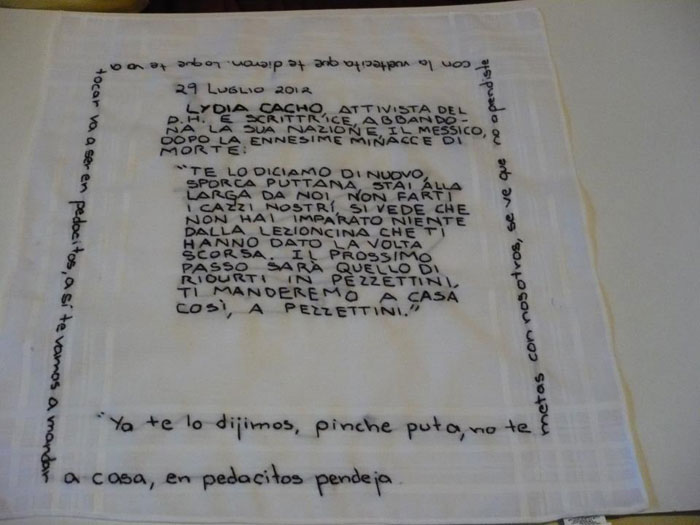 29 LUGLIO 2012
LYDIA CACHO, ATTIVISTA DEL
D.H. E SCRITTRICE, ABBANDO-
NA LA SUA NAZIONE, IL MESSICO,
DOPO LA ENNESIME MINACCE DI
MORTE:
"TE LO DICIAMO DI NUOVO,
SPORCA PUTTANA, STAI ALLA
LARGA DA NOI, NON FARTI
I CAZZI NOSTRI, SI VEDE CHE
NON HAI IMPARATO NIENTE
DALLA LEZIONCINA CHE TI
HANNO DATO LA VOLTA
SCORSA. IL PROSSIMO
PASSO SARÀ QUELLO DI
RIDURTI IN PEZZETTINI.
TI MANDEREMO A CASA
COSÌ, A PEZZETTINI."
"Ya te lo dijimos, pinche puta, no te
metas con nosotros, se ve que no apendiste
con la vueltecita que te dieron. Lo que te va a
tocar va a ser en pedacitos, a sí te vamos a mandar
a casa, en pedacitos pendeja